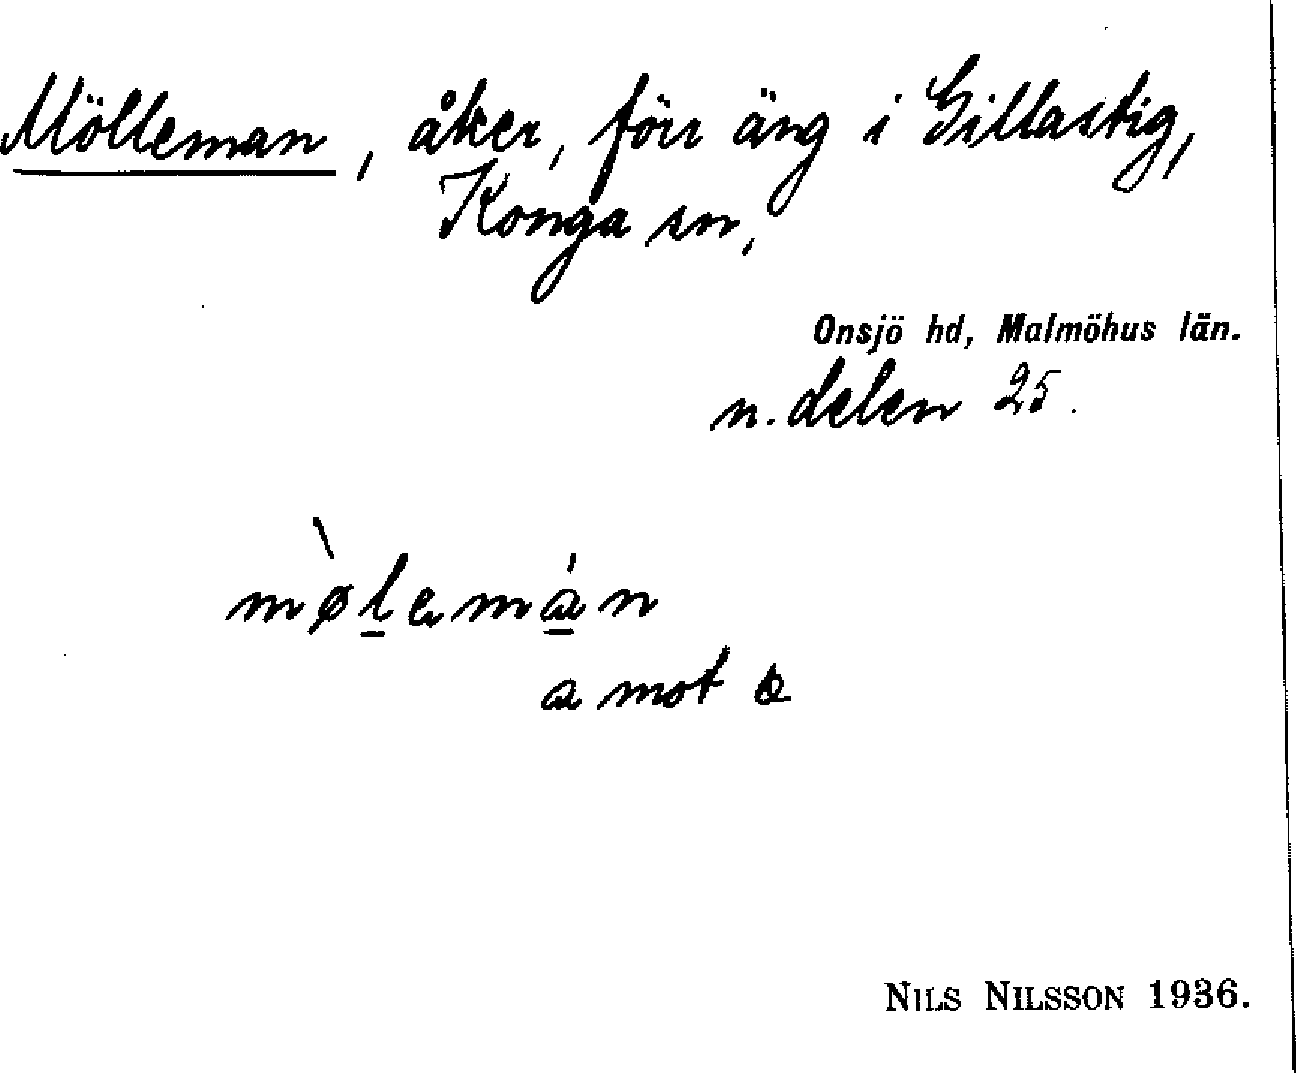 Mölleman, åker, förr äng i Gillastig,
Konga sn,
Onsjö hd, Malmöhus län.
n. delen 25.
mø̀lemán
a mot
NILS NILSSON 1936.